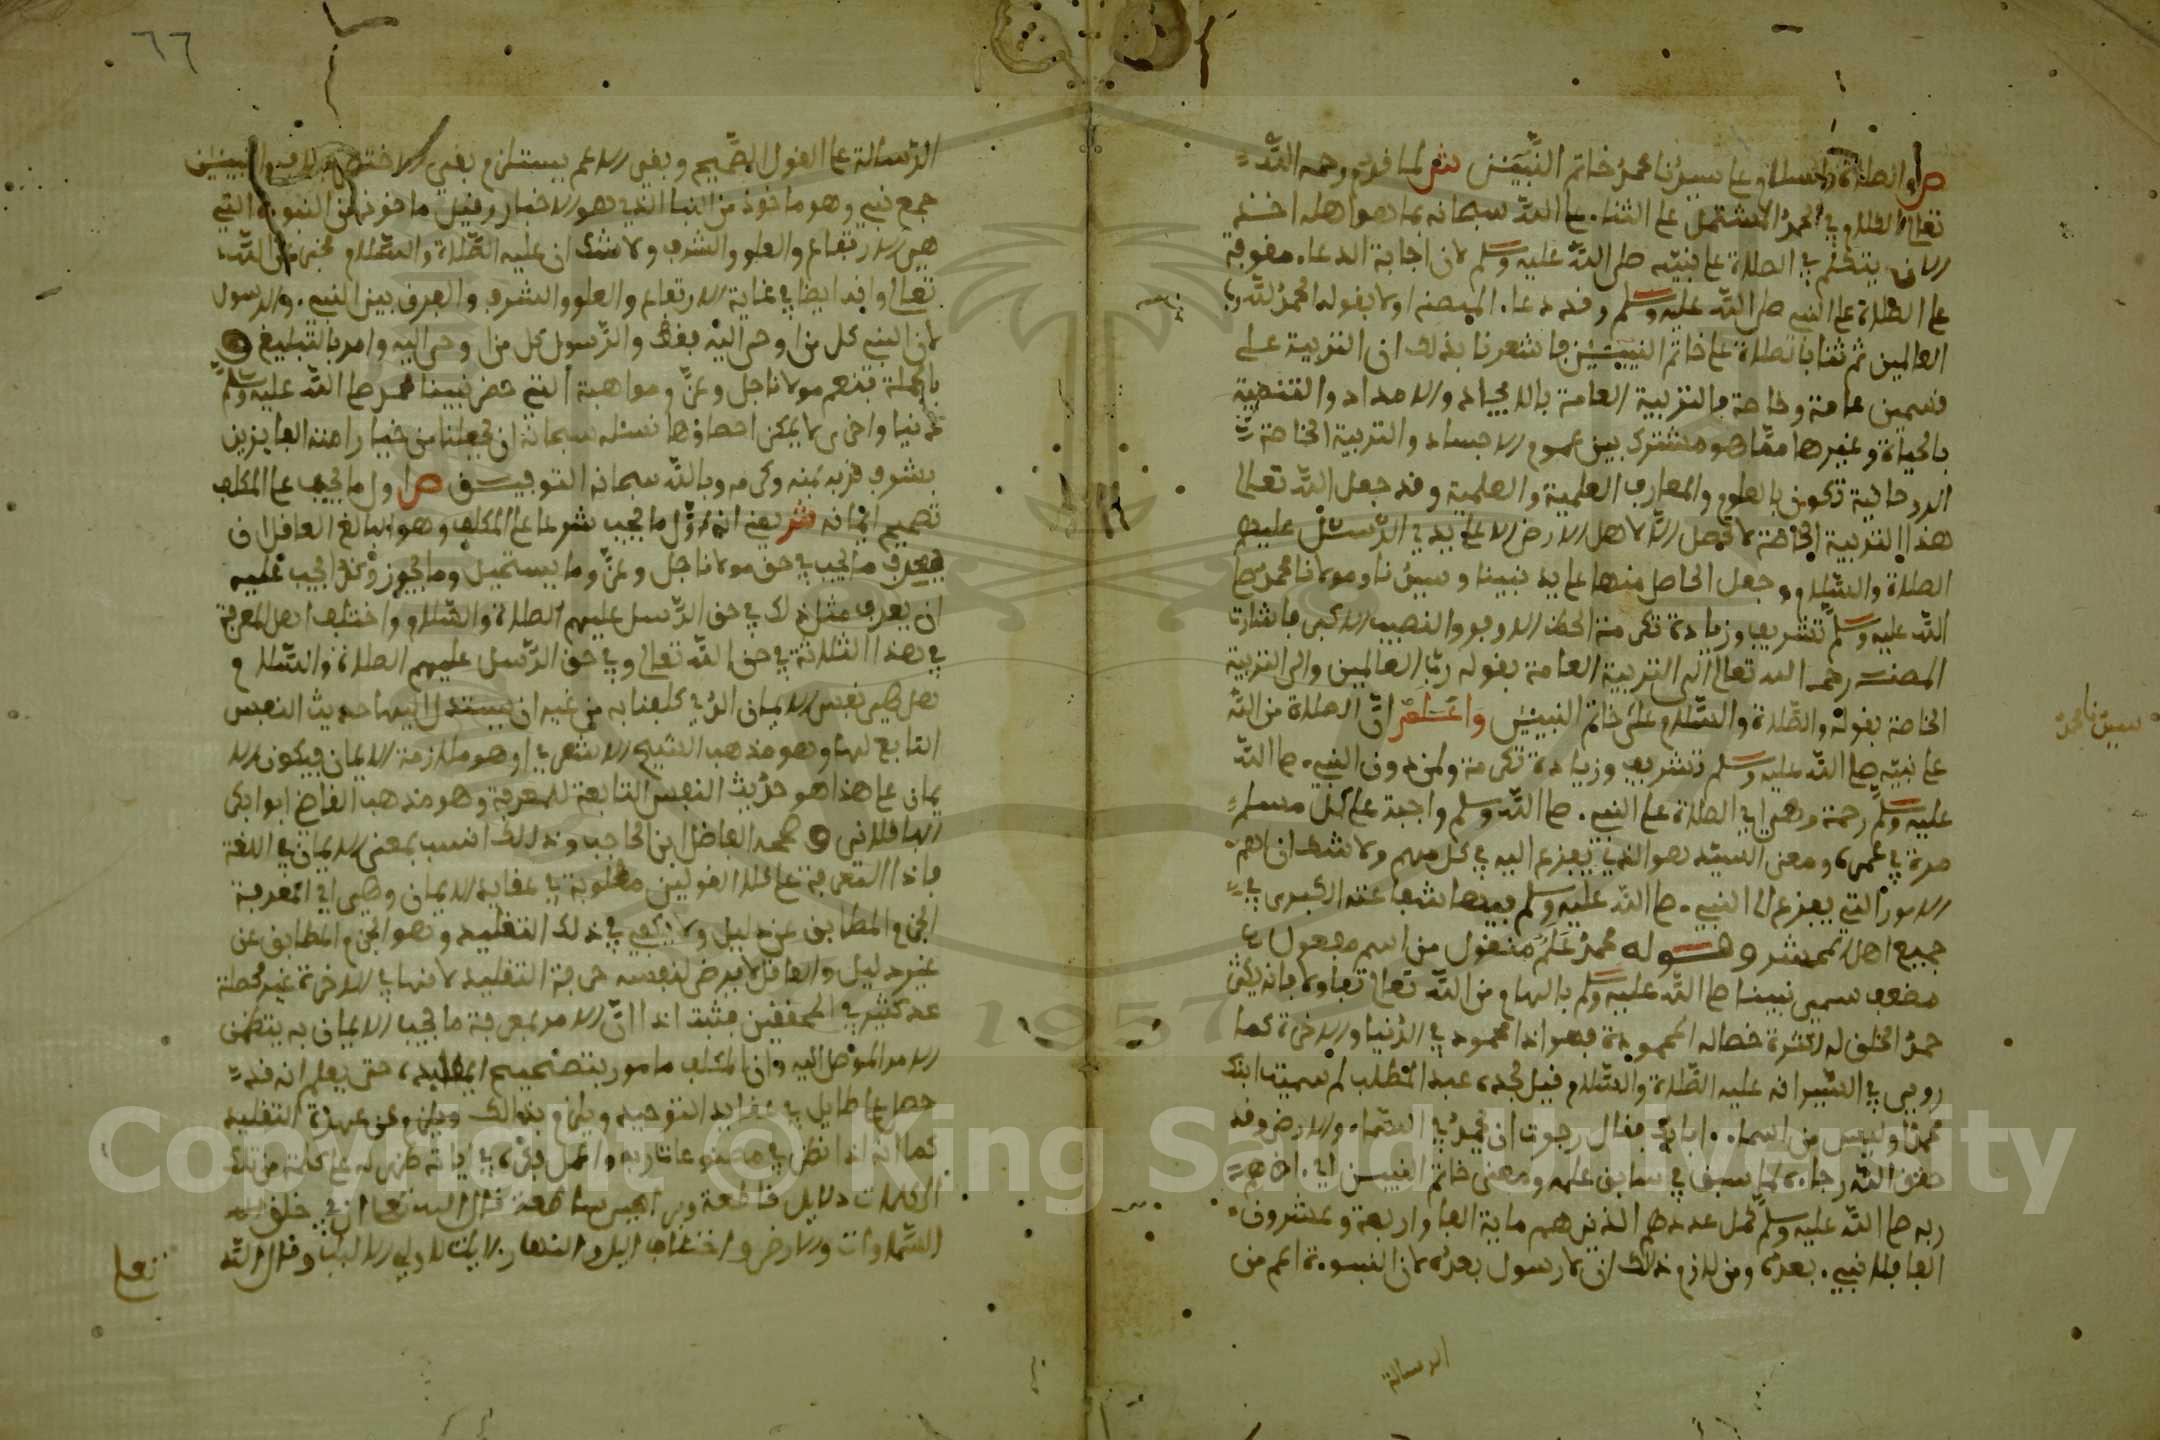 ص والصلاة والسلام على سيدنا محمد خاتم النبيين ش لما قدم رحمه الله
تعالى الكلام في الحمد المشتمل على الثناء على الله سبحانه بما هو اهله اخذ
الان يتكلم في الصلاة على نبيه صلى الله عليه وسلم لان اجابة الدعاء موقوفة
على الصلاة على النبي صلى الله عليه وسلم وقد دعا المصنف اولا بقوله الحمد لله رب
العالمين ثم ثنا بالصلاة على خاتم النبيئين فاشعرنا بذلك ان التربية على
قسمين عامة وخاصة فالتربية العامة بالايجاد والامداد والتغذية
بالحياة وغيرها مما هو مشترك بين عموم الاجساد والتربية الخاصة
الروحانية تكون بالعلوم والمعارف العلمية والعملية وقد جعل الله تعالى
هذا التربية الخاصة لا تحصل الا لاهل الارض الا على يدي الرسل عليهم
الصلاة والسلام وجعل الحاصل منها على يد نبينا وسيدنا ومولانا محمد صلى
الله عليه وسلم تشريف وزيادة تكرمة الحظ الاوفر والنصيب الاكبر فاشارت
المصنف رحمه الله تعالى الى التربية العامة بقوله رب العالمين والى التربية
الخاصة بقوله والصلاة والسلام على خاتم النبيين واعلم ان الصلاة من الله
على نبيه صلى الله عليه وسلم تشريف وزيادة تكرمة ولمن دون النبي صلى الله
عليه وسلم رحمة وهي اي الصلاة على النبي صلى الله وسلم واجبة على كل مسلم
مرة في عمره ومعنى السيد هو الذي يفزع اليه في كل مهم ولا شك ان اهم
الامور التي يفزع الى النبي صلى الله عليه وسلم فيها شفاعته الكبرى في
جميع اهل المحشر وقوله محمد علم منقول من اسم مفعول
مضعف سمي نبينا صلى الله عليه وسلم بالهام من الله تعالى تفاولا بانه يكثر
حمد الخلق له لكثرة خصاله المحمودة فهو اذا محمود في الدنيا والاخرة كما
روي في السير انه عليه الصلاة والسلام قيل لجده عبد المطلب لم سميت ابنك
محمدا وليس من اسماء ابايك فقال رجوت ان يحمد في السماء والارض وقد
حقق الله رجاءه كما سبق في سابق علمه ومعنى خاتم النبيين اي اخرهم
ربه صلى الله عليه وسلم كمل عددهم الذين هم ماية الف واربعة وعشرون
الفا فلا نبي بعده ومن لازم ذلك ان لا رسول بعده لان النبوءة اعم من
الرسالة
سيدنا محمد
٦٦
الرسالة على القول الصحيح ونفي الاعم يستلزم نفي الاخص والنبيئين
جمع نبي وهو ماخوذ من النبا الذي هو الاخبار وقيل ماخوذ من النبوة التي
هي الارتفاع والعلو والشرف ولا شك ان عليه الصلاة والسلام مخبر من الله
تعالى وانه ايضا في غاية الارتفاع والعلو والشرف والفرق بين النبي والرسول
لان النبي كل من اوحي اليه بفقط والرسول كل من اوحي اليه وامر بالتبليغ
بالجملة فنعم مولانا جل وعز ومواهبه التي خص نبينا محمد صلى الله عليه وسلم
دنيا واخرى لا يمكن احصاؤها نسئله سبحانه ان يجعلنا من خيار امته الفايزين
بشرف قربه بمنه وكرمه وبالله سبحانه التوفيق ص اول ما يجب على المكلف
تصحيح ايمانه ش يعني انه اول ما يجب شرعا على المكلف وهو البالغ العاقل ان
يعرف ما يجب في حق مولانا جل وعز وما يستحيل وما يجوز وكذا يجب عليه
ان يعرف مثل ذلك في حق الرسل عليهم الصلاة والسلام واختلف اهل المعرفة
في هذا الثلاثة في حق الله تعالى وفي حق الرسل عليهم الصلاة والسلام
هل هي نفس الايمان الذي كلفنا به من غير ان يستدل اليها حديث النفس
التابع لها وهو مذهب الشيخ الاشعري او هو ملازمة الايمان فيكون الا
يمان على هذا هو حديث النفس التابعة للمعرفة وهو مذهب القاضي ابو ابكر
الباقلاني وصححه الفاضل ابن الحاجب وذلك انسب بمعنى الايمان في اللغة
فاذا المعرفة على كلا القولين مطلوبة في عقايد الايمان وهي اي المعرفة
الجزم المطابق عن دليل ولا يكفي في ذلك التقليد وهو الجزم المطابق عن
غير دليل والعاقل لا يرضى لنفسه حرفة التقليد لانها في الاخرة غير مخلصة
عند كثير في المحققين فثبت اذا ان الامر بمعرفة ما يجب الايمان به يتضمن
الامر الموصل اليه وان المكلف مامور بتصحيح ايمانه حتى يعلم انه قد
حصل على طايل في عقايد التوحيد ويلزم بذالك ويخرج عن عهدة التقليد
كما انه اذا نظر في مصنوعات ربه واعمل فكره في اياته ظهر له على كلمة من تلك
الكلمات دلايل قاطعة وبراهين ساطعة قال الله تعالى ان في خلق
السماوات والارض واختلاف اليل والنهار لايات لاولي الالباب وقال الله
تعلى
Copyright © King Saud University
1957